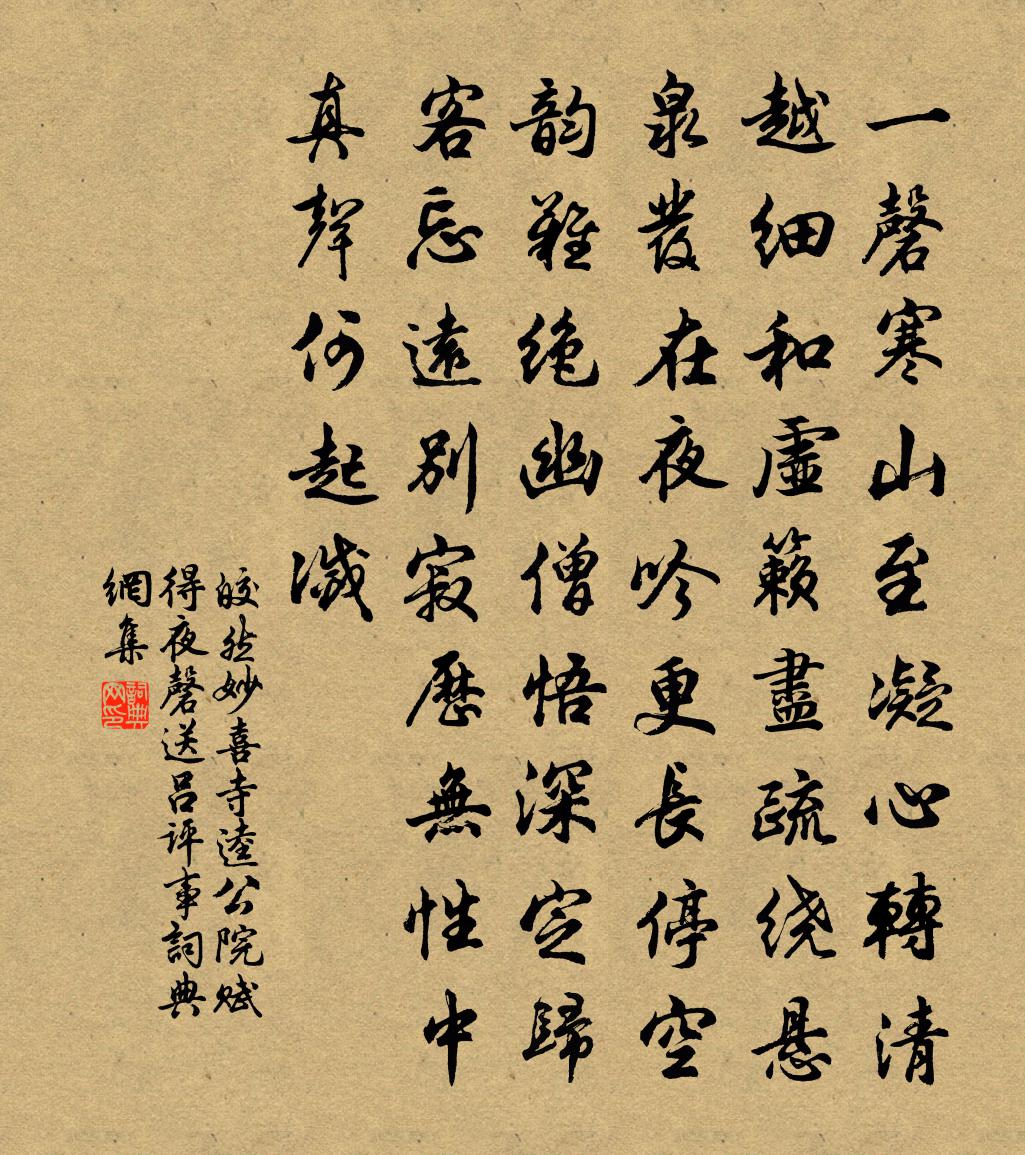 一磬寒山至凝心轉清
越細和虛籟盡疏绕悬
泉發在夜吟更長停空
韵難绝幽僧悟深定歸
客忘遠別寂歷無性中
真聲何起滅
皎然妙喜寺逵公院赋
得夜磬送吕评事詞典
網集
詞典
网印